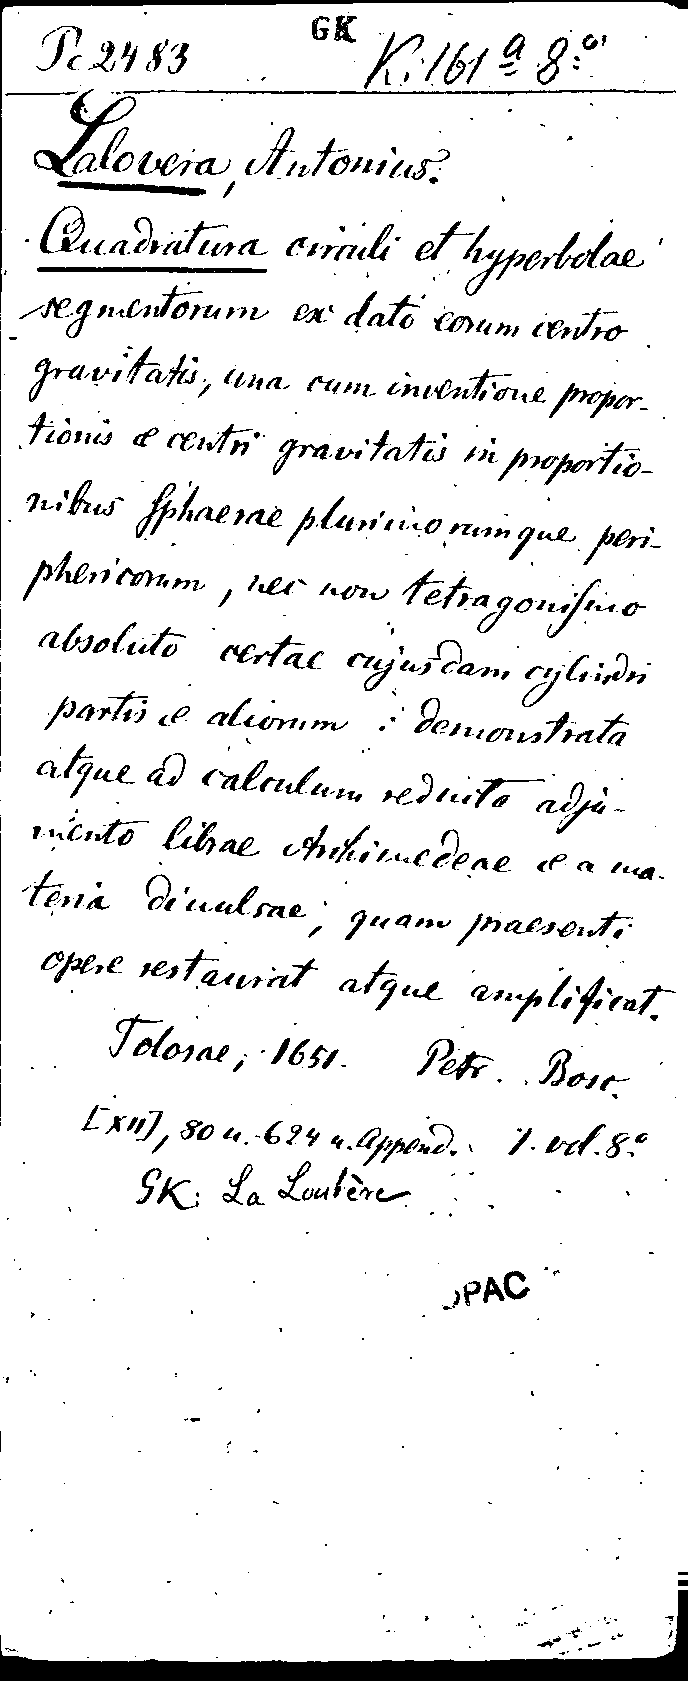 GK
Pc 2483 K: 161 a 8:o
Lalovera, Antonius.
Quadratura circuli et hyperbolae
segmentorum ex dato eorum centro
gravitatis, una cum inventione propor-
tionis & centri gravitatis in proportio-
nibus sphaerae plurimorumque peri-
phericorum, nec non tetragonismo
absoluto certae cujusdam cylindri
partis & aliorum : demonstrata
atque ad calculum reducta adju-
mento librae Archimedeae & a ma-
teria divulsae, quam praesenti
opere restaurat atque amplificat.
Tolosae, 1651. Petr. Bosc.
[XII], 80 u. 624 u. Append. 1. vol. 8.o
GK: La Loubère
OPAC